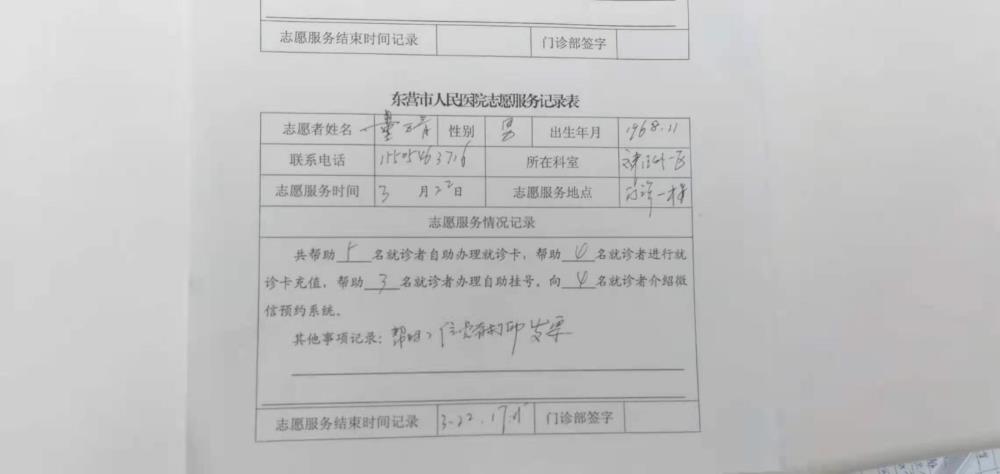 志愿服务结束时间记录 门诊部签字
东营市人民医院志愿服务记录表
志愿者姓名 性别 男 出生年月 1968.11
联系电话 15505463716 所在科室
志愿服务时间 3 月 22 日 志愿服务地点 门诊一楼
志愿服务情况记录
共帮助 5 名就诊者自助办理就诊卡，帮助 4 名就诊者进行就
诊卡充值，帮助 3 名就诊者办理自助挂号。向 4 名就诊者介绍微
信预约系统。
其他事项记录：帮助 打印发票
志愿服务结束时间记录 3-22. 门诊部签字